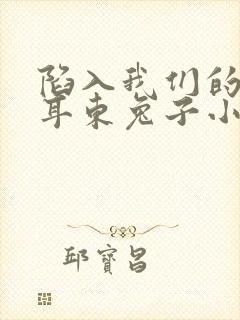 陷入我们的
耳东兔子小
邱宝昌